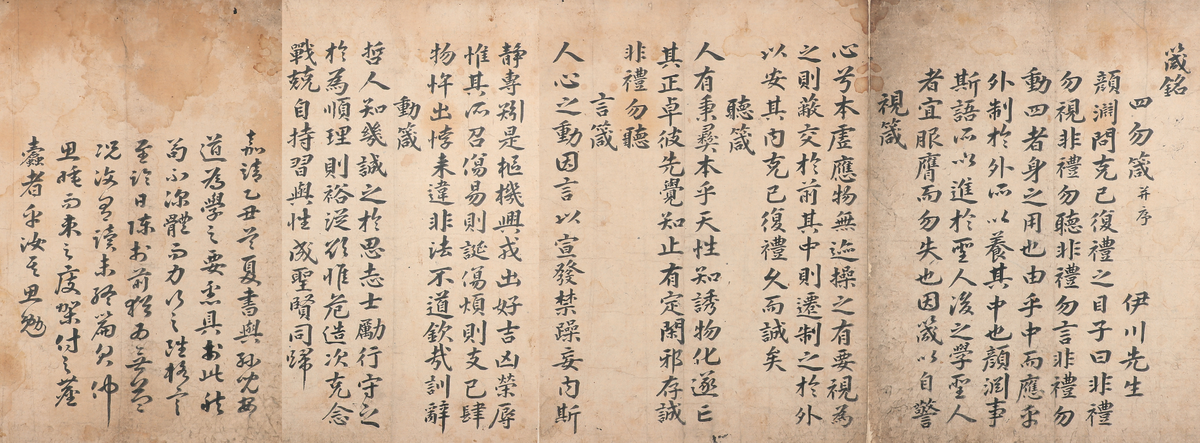 箴銘
四勿箴 并序 伊川先生
顔淵問克己復禮之目子曰非禮
勿視非禮勿聽非禮勿言非禮勿
動四者身之用也由乎中而應乎
外制於外所以養其中也顔淵事
斯語所以進於聖人後之學聖人
者宜服膺而勿失也因箴以自警
視箴
心兮本虛應物無迹操之有要視爲
之則蔽交於前其中則遷制之於外
以安其內克己復禮久而誠矣
聽箴
人有秉彝本乎天性知誘物化遂亡
其正卓彼先覺知止有定閑邪存誠
非禮勿聽
言箴
人心之動因言以宣發禁躁妄內斯
靜專矧是樞機興戎出好吉凶榮辱
惟其所召傷易則誕傷煩則支己肆
物忤出悖來違非法不道欽哉訓辭
動箴
哲人知幾誠之於思志士勵行守之
於爲順理則裕從欲惟危造次克念
戰兢自持習與性成聖賢同歸
嘉靖乙丑首夏書與孫兒安
道爲學之要悉具於此然
苟不深體而力行之雖格言
至論日陳於前猶爲無益
況汝看讀未終篇欠伸
思睡而束之庋架付之塵
蠹者乎汝其思勉